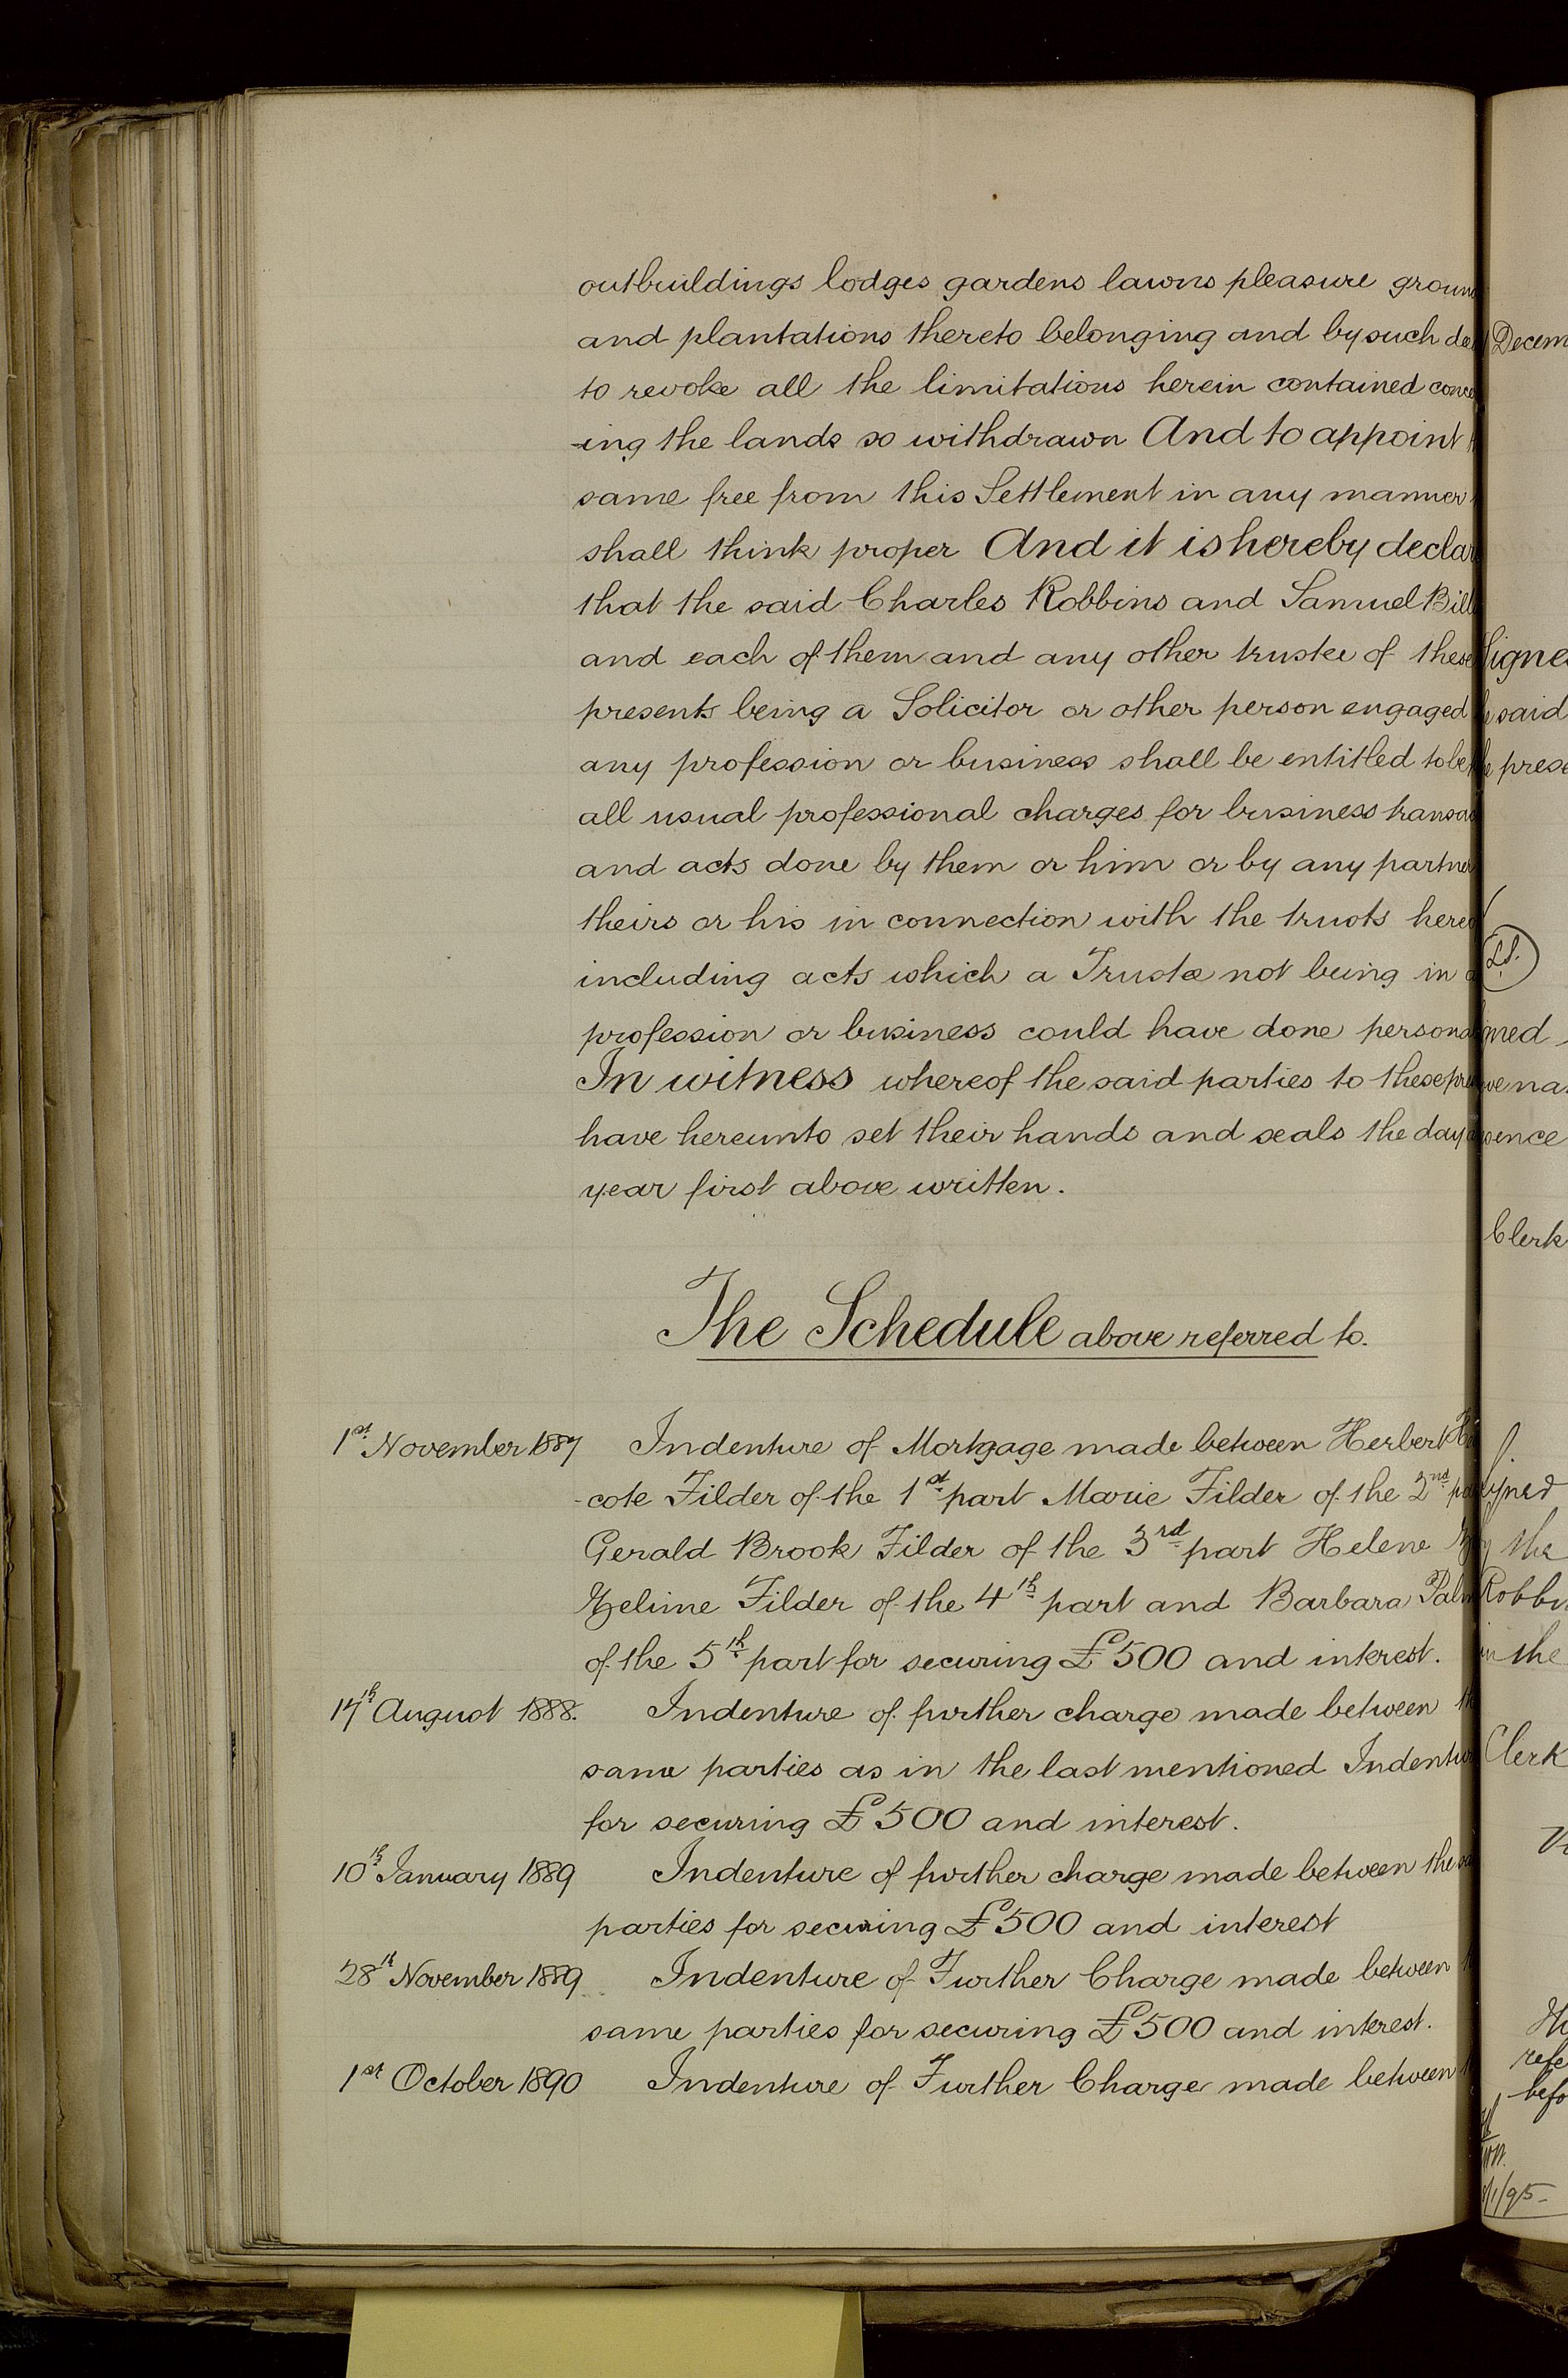 outbuildings lodges gardens lawns pleasure groun
and plantations thereto belonging and by such de
to revoke all the limitations herein contained conce
-ing the lands so withdrawn And to appoint
same free from this Settlement in any manner
shall think proper And it is hereby declar
that the said Charles Robbins and Samuel Bill
and each of them and any other trustee of these
presents being a Solicitor or other person engaged
any profession or business shall be entitled to be
all usual professional charges for business transac
and acts done by them or him or by any partner
theirs or his in connection with the trusts hereo
including acts which a Trustee not being in a
profession or business could have done persona
In witness whereof the said parties to these pre
have hereunto set their hands and seals the day
year first above written.
The Schedule above referred to.
1st November 1887 Indenture of Mortgage made between Herbert He
-cote Filder of the 1st part Marie Filder of the 2nd pa
Gerald Brook Filder of the 3rd part Helene
Zelime Filder of the 4th part and Barbara Palm
of the 5th part for securing £500 and interest.
17th August 1888. Indenture of further charge made between th
same parties as in the last mentioned Indentur
for securing £500 and interest.
10th January 1889 Indenture of further charge made between the sa
parties for securing £500 and interest
28th November 1889 Indenture of Further Charge made between
same parties for securing £500 and interest.
1st October 1890 Indenture of Further Charge made between
Decem
Signe
said
prese
L.S.
gned
ve na
sence
Clerk
the
Robbi
in the
Clerk
refe
befo
/1/95-